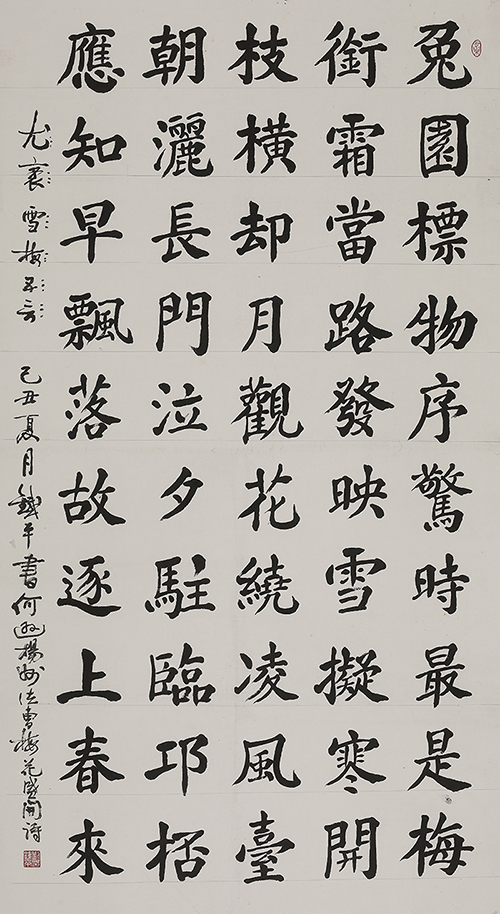 兔園標物序驚時最是梅
銜霜當路發映雪擬寒開
枝橫却月觀花繞凌風臺
朝灑長門泣夕駐臨邛桮
應知早飄落故逐上春來
尤袤雪梅五言己丑夏月鐵平書何遜揚州法曹梅花盛開詩